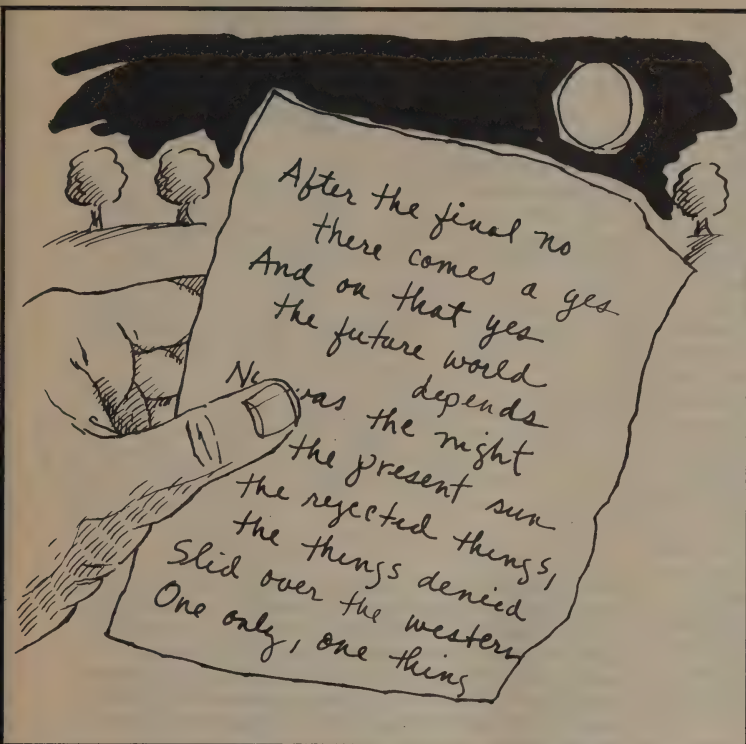 After the final no
there comes a yes
And on that yes
the future world
depends
No was the night
the present sun
the rejected things,
the things denied
Slid over the western
One only, one thing